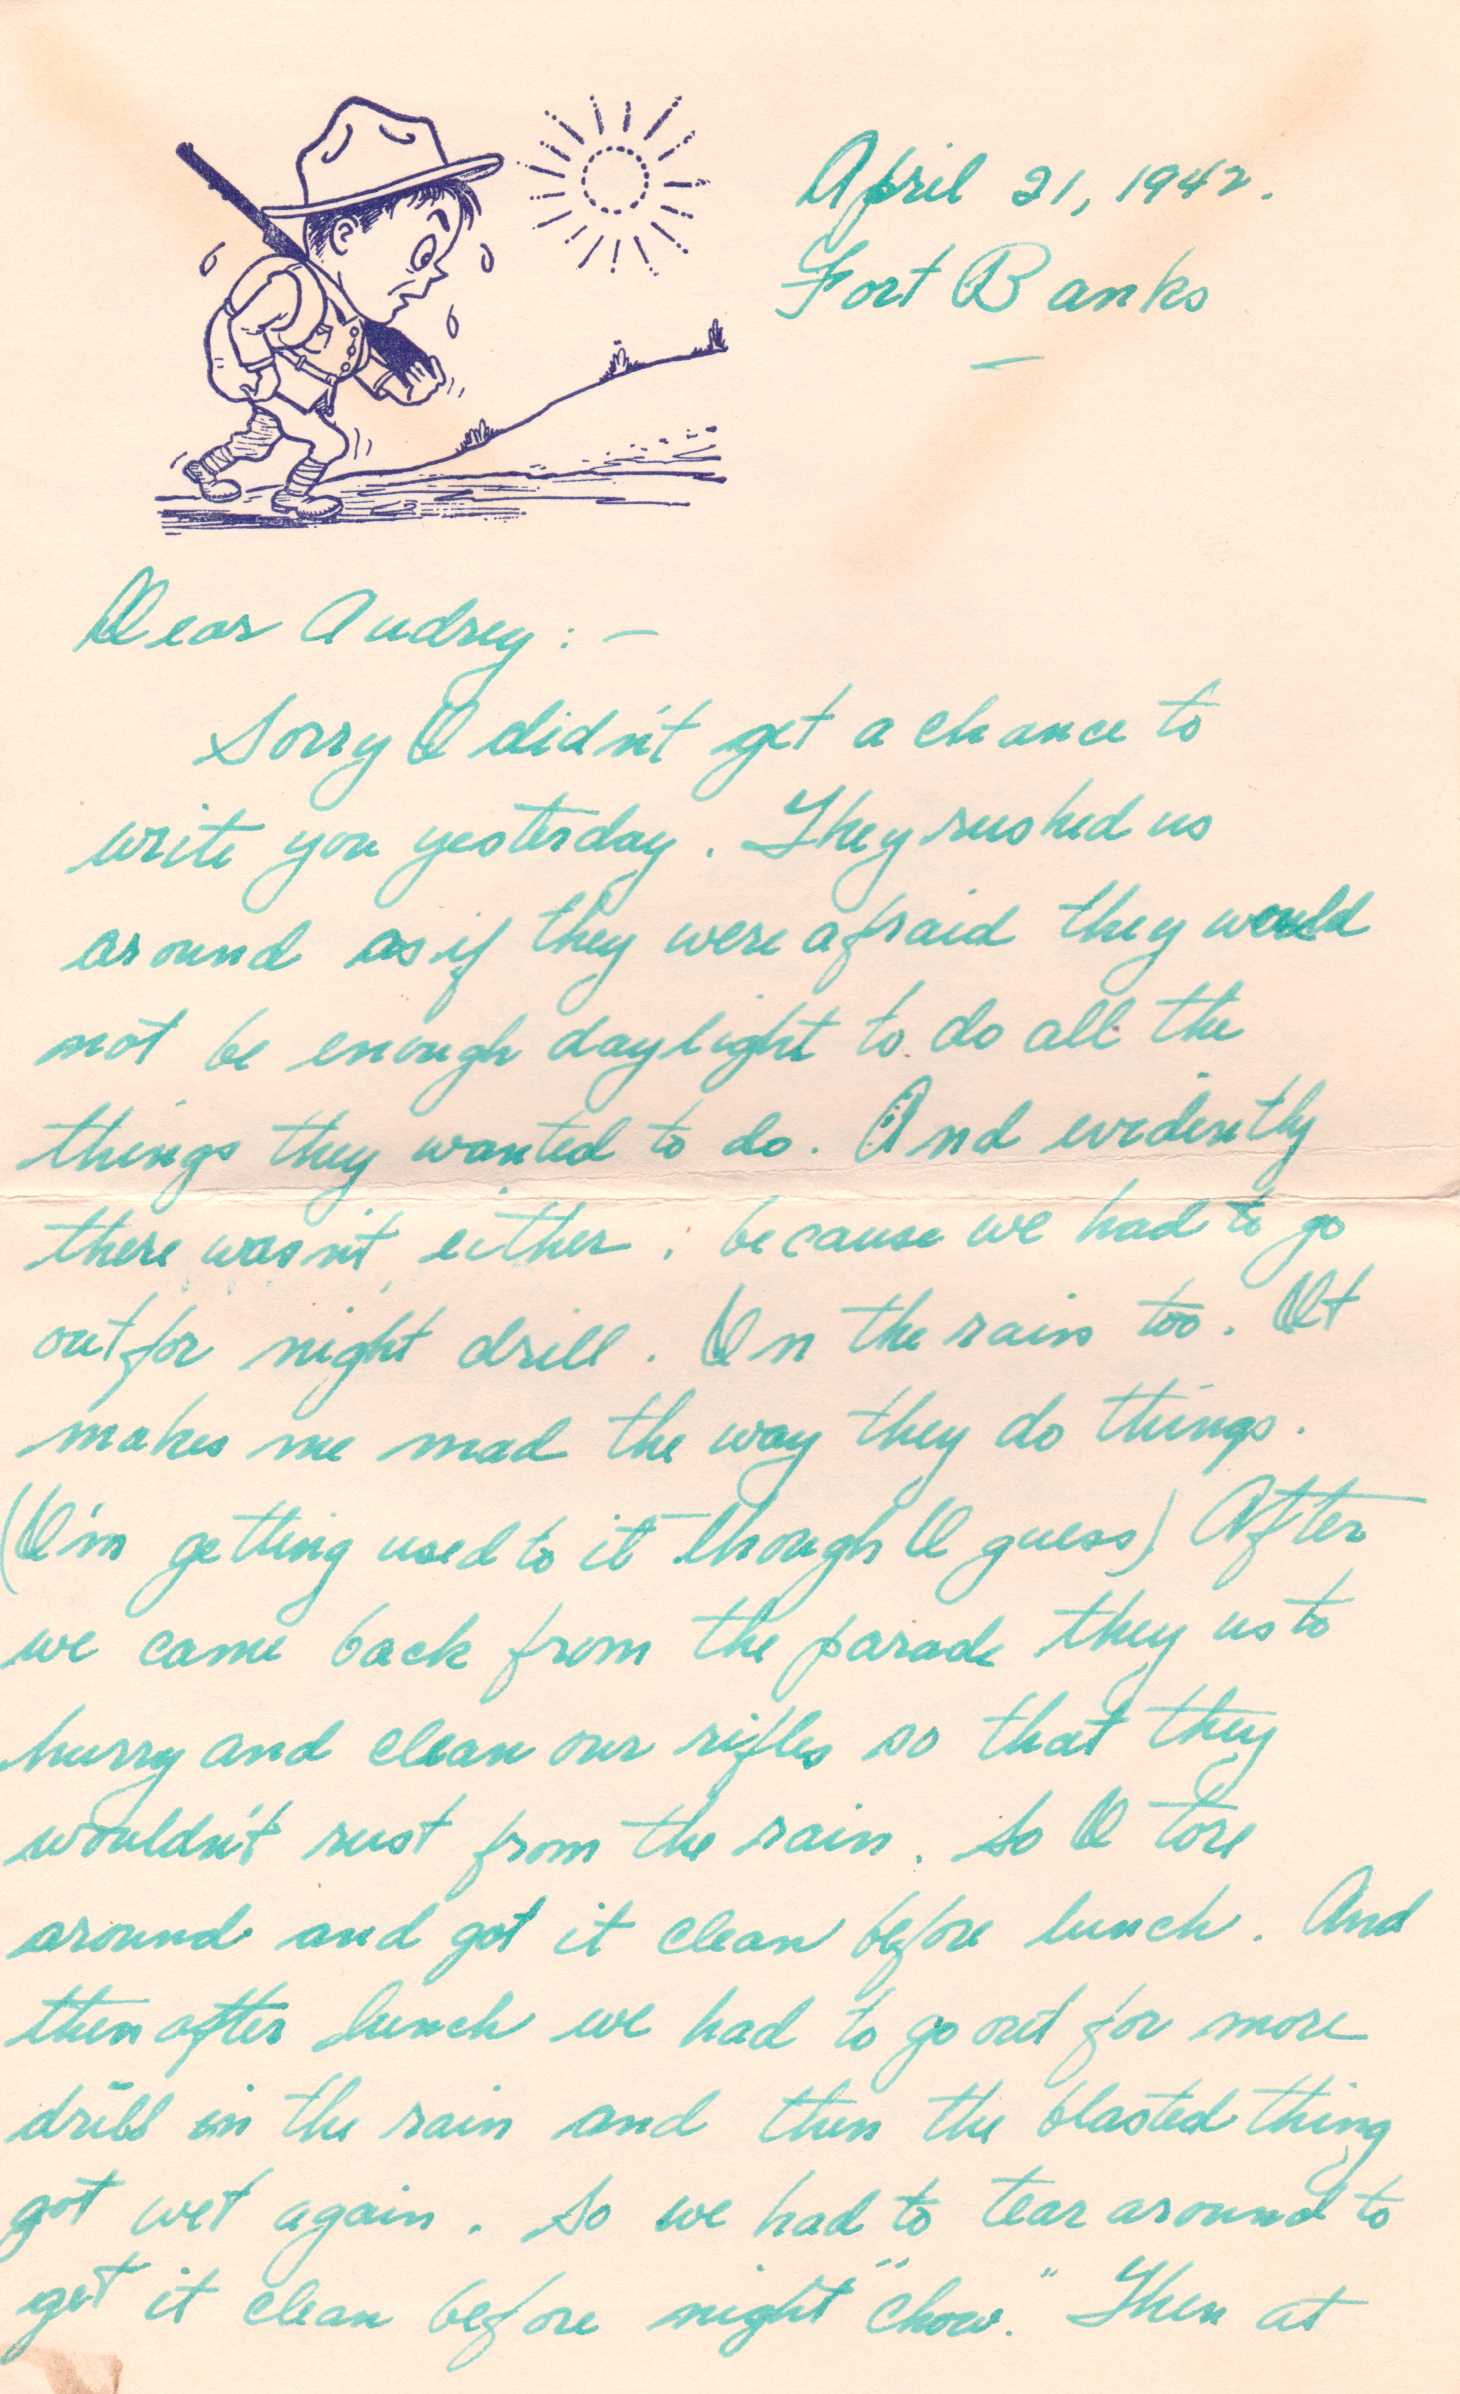 April 21, 1942.
Fort Banks
Dear Audrey:—
Sorry I didn't get a chance to
write you yesterday. They rushed us
around as if they were afraid they would
not be enough daylight to do all the
things they wanted to do. And evidently
there wasn't either; because we had to go
out for night drill. In the rain too. It
makes me mad the way they do things.
(I'm getting used to it though I guess) After
we came back from the parade they us to
hurry and clean our rifles so that they
wouldn't rust from the rain. So I tore
around and got it clean before lunch. And
then after lunch we had to go out for more
drill in the rain and then the blasted thing
got wet again. So we had to tear around to
get it clean before night "chow." Then at